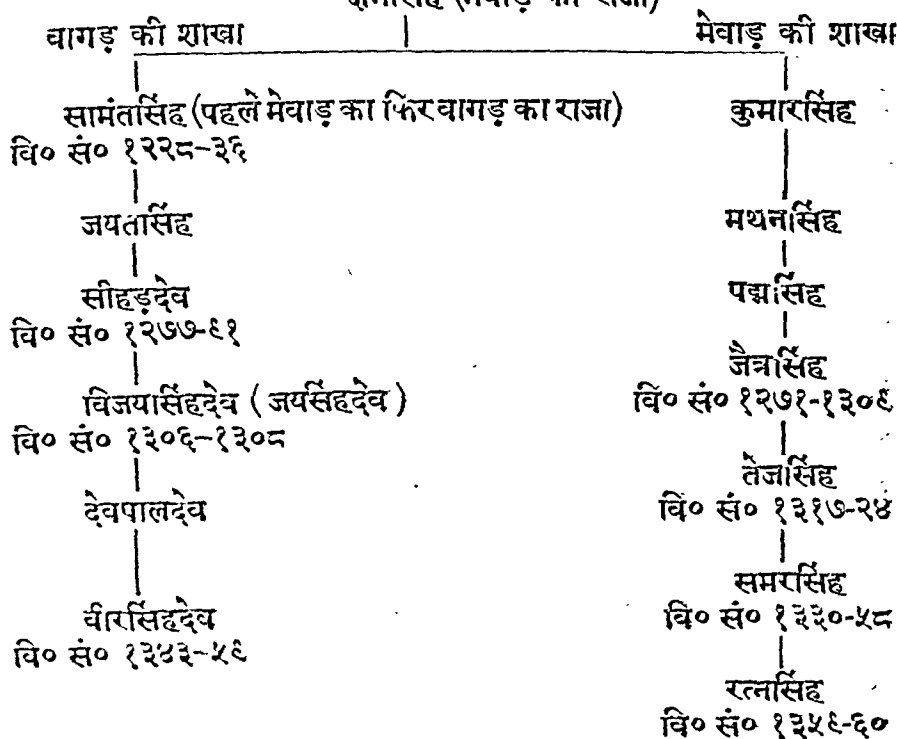 क्षेमसिंह (मेवाड़ का राजा)
वागड़ की शाखा
मेवाड़ की शाखा
सामंतसिंह (पहले मेवाड़ का फिर वागड़ का राजा)
वि० सं० १२२८-३६
जयतसिंह
सीहड़देव
वि० सं० १२७७-९१
विजयसिंहदेव (जयसिंहदेव)
वि० सं० १३०६-१३०८
देवपालदेव
वीरसिंहदेव
वि० सं० १३४३-५९
कुमारसिंह
मथनसिंह
पद्मसिंह
जैत्रसिंह
वि० सं० १२७१-१३०९
तेजसिंह
वि० सं० १३१७-२४
समरसिंह
वि० सं० १३३०-५८
रत्नसिंह
वि० सं० १३५९-६०